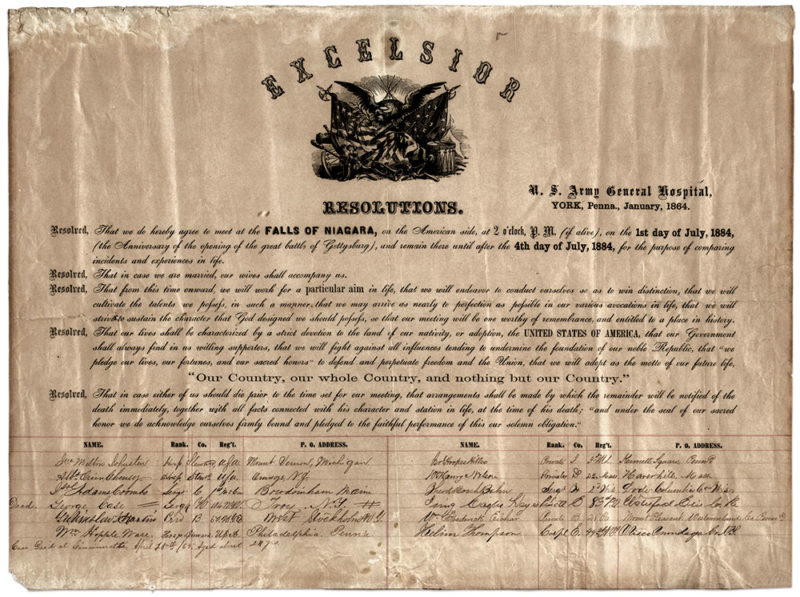 EXCELSIOR
RESOLUTIONS.
U. S. Army General Hospital,
YORK, Penna., January, 1864.
Resolved, That we do hereby agree to meet at the FALLS OF NIAGARA, on the American side, at 2 o'clock, P. M. (if alive), on the 1st day of July, 1884,
(the Anniversary of the opening of the great battle of Gettysburg), and remain there until after the 4th day of July, 1884, for the purpose of comparing
incidents and experiences in life.
Resolved, That in case we are married, our wives shall accompany us.
Resolved, That from this time onward, we will work for a particular aim in life, that we will endeavor to conduct ourselves so as to win distinction, that we will
cultivate the talents we posess, in such a manner, that we may arrive as nearly to perfection as possible in our various avocations in life, that we will
strive to sustain the character that God designed we should posess, so that our meeting will be one worthy of remembrance, and entitled to a place in history.
Resolved, That our lives shall be characterized by a strict devotion to the land of our nativity, or adoption, the UNITED STATES OF AMERICA, that our Government
shall always find in us willing supporters, that we will fight against all influences tending to undermine the foundation of our noble Republic, that "we
pledge our lives, our fortunes, and our sacred honors" to defend and perpetuate freedom and the Union, that we will adopt as the motto of our future life,
"Our Country, our whole Country, and nothing but our Country."
Resolved, That in case either of us should die prior to the time set for our meeting, that arrangements shall be made by which the remainder will be notified of the
death immediately, together with all facts connected with his character and station in life, at the time of his death; "and under the seal of our sacred
honor we do acknowledge ourselves firmly bound and pledged to the faithful performance of this our solemn obligation."
NAME. Rank. Co. Reg't. P. O. ADDRESS. NAME. Rank. Co. Reg't. P. O. ADDRESS.
Johnston Hosp Steward U.S.A. Mount Vernon, Michigan
Private Kennett Square Penn
Hosp Stew U.S.A. Oswego N.Y.
Private D Haverhill Mass
Adams Coombs Sergt C Bowdoinham Maine
Sergt Columbia Co Wis
Dead. George Case Sergt Troy N.Y.
Erie Co
Priv B West Stockholm N.Y.
Wm Private B Mount Pleasant Westmoreland Co Penna
Wm Hopple Ware Hosp Steward U.S.A. Philadelphia Penn
Thompson Corpl Otisco Onondaga Co N.Y.
Geo Case died at April 28th /65, aged about
24 yrs.